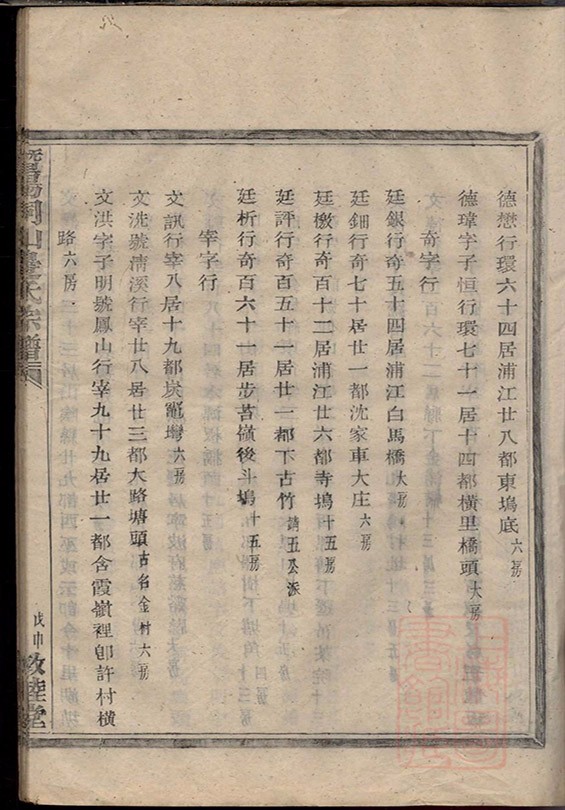 德懋行環六十四居浦江廿八都東塢底六房
德瑋字子恒行環七十一居十四都橫里橋頭大房
奇字行
廷銀行奇五十四居浦江白馬橋大房
廷鈿行奇七十居廿一都沈家車大庄六房
廷檄行奇百十二居浦江廿六都寺塢十五房
廷評行奇百五十一居廿一都下古竹靖五公派
廷析行奇百六十一居步苦嶺後斗塢十五房
宰字行
文訊行宰八居十九都炭竈塆六房
文洗號清溪行宰廿八居廿三都大路塘頭古名金村六房
文洪字子明號鳳山行宰九十九居廿一都含霞嶺裡卽許村橫
路六房
山 氏宗譜
戊申 敦睦堂